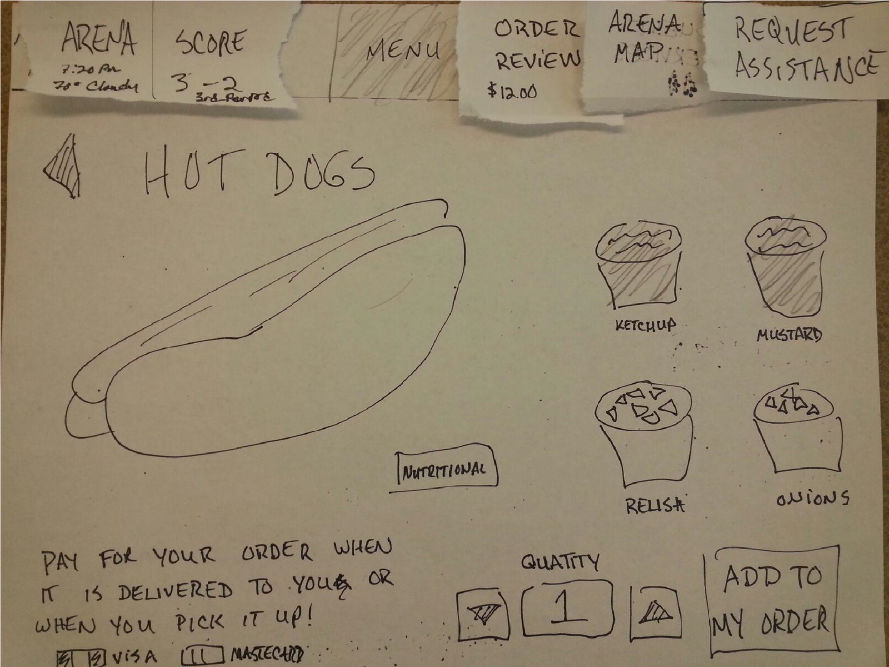 ARENA
7:20 PM
70° Cloudy
SCORE
3 - 2
3rd Period
MENU
ORDER
REVIEW
$12.00
ARENA
MAP
REQUEST
ASSISTANCE
HOT DOGS
KETCHUP
MUSTARD
NUTRITIONAL
RELISH
ONIONS
PAY FOR YOUR ORDER WHEN
IT IS DELIVERED TO YOU OR
WHEN YOU PICK IT UP!
VISA MASTECARD
QUATITY
1
ADD TO
MY ORDER